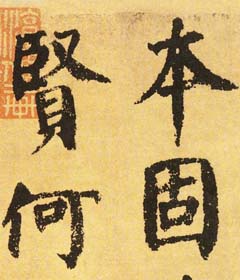 本固
賢何